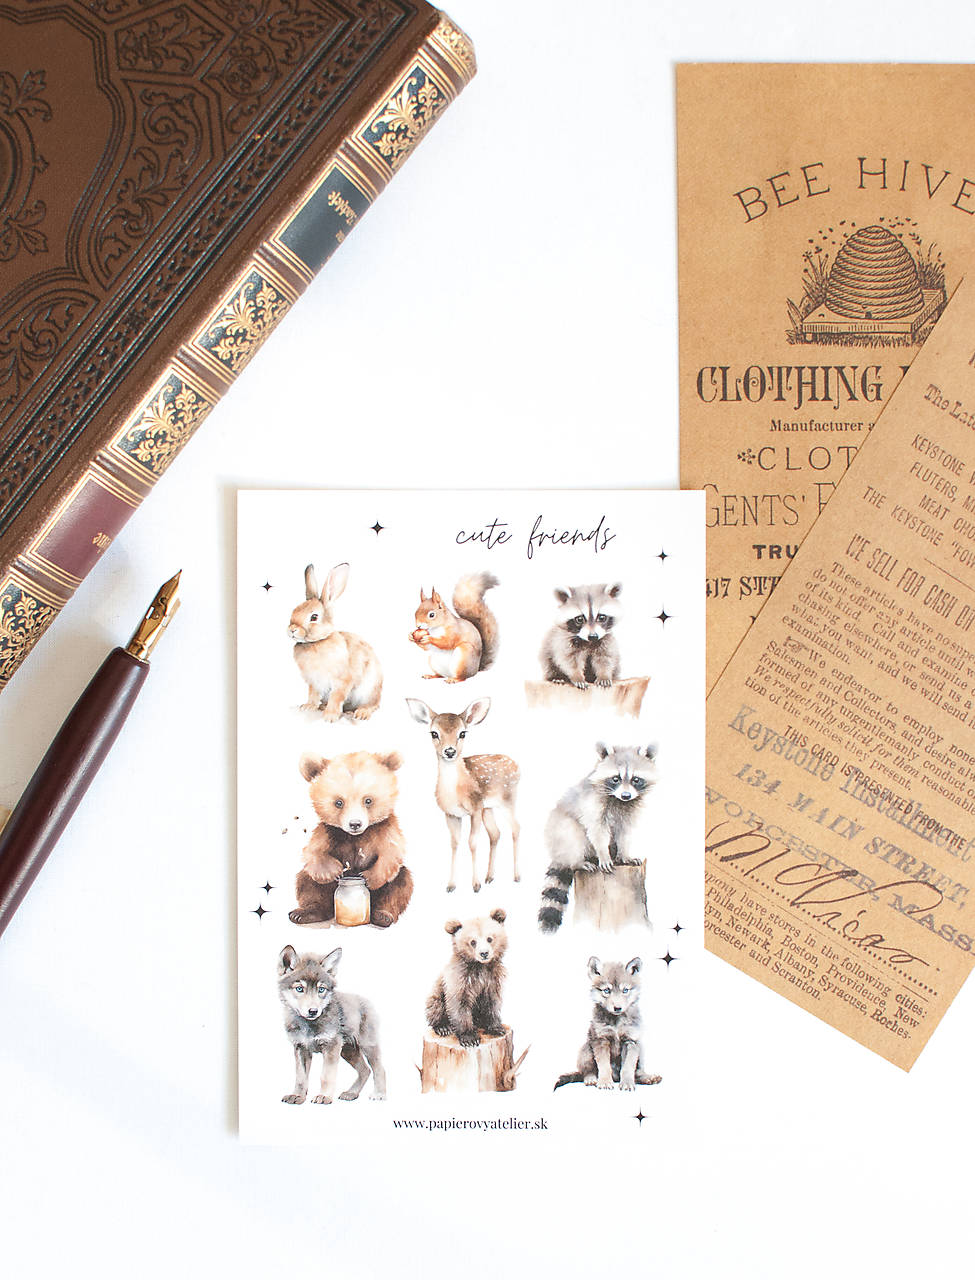 BEE HIVE
CLOTHING
Manufacturer
CLOT
GENTS'
TRU
417
cute friends
www.papierovyatelier.sk
The
KEYSTONE
FLUTERS,
MEAT
THE KEYSTONE
WE SELL FOR CASH
These articles have no
do not offer any article until
of its kind. Call and examine
chasing elsewhere, or send us a
what you want, and we will send
examination.
We endeavor to employ none
Salesmen and Collectors, and desire
formed of any ungentlemanly conduct
We respectfully solicit for them reasonable
tion of the articles they present.
THIS CARD IS PRESENTED FROM THE
Keystone Installment
134 MAIN STREET,
WORCESTER, MASS
have stores in the following cities:
Philadelphia, Boston, Providence, New
Newark, Albany, Syracuse, Roches-
and Scranton.